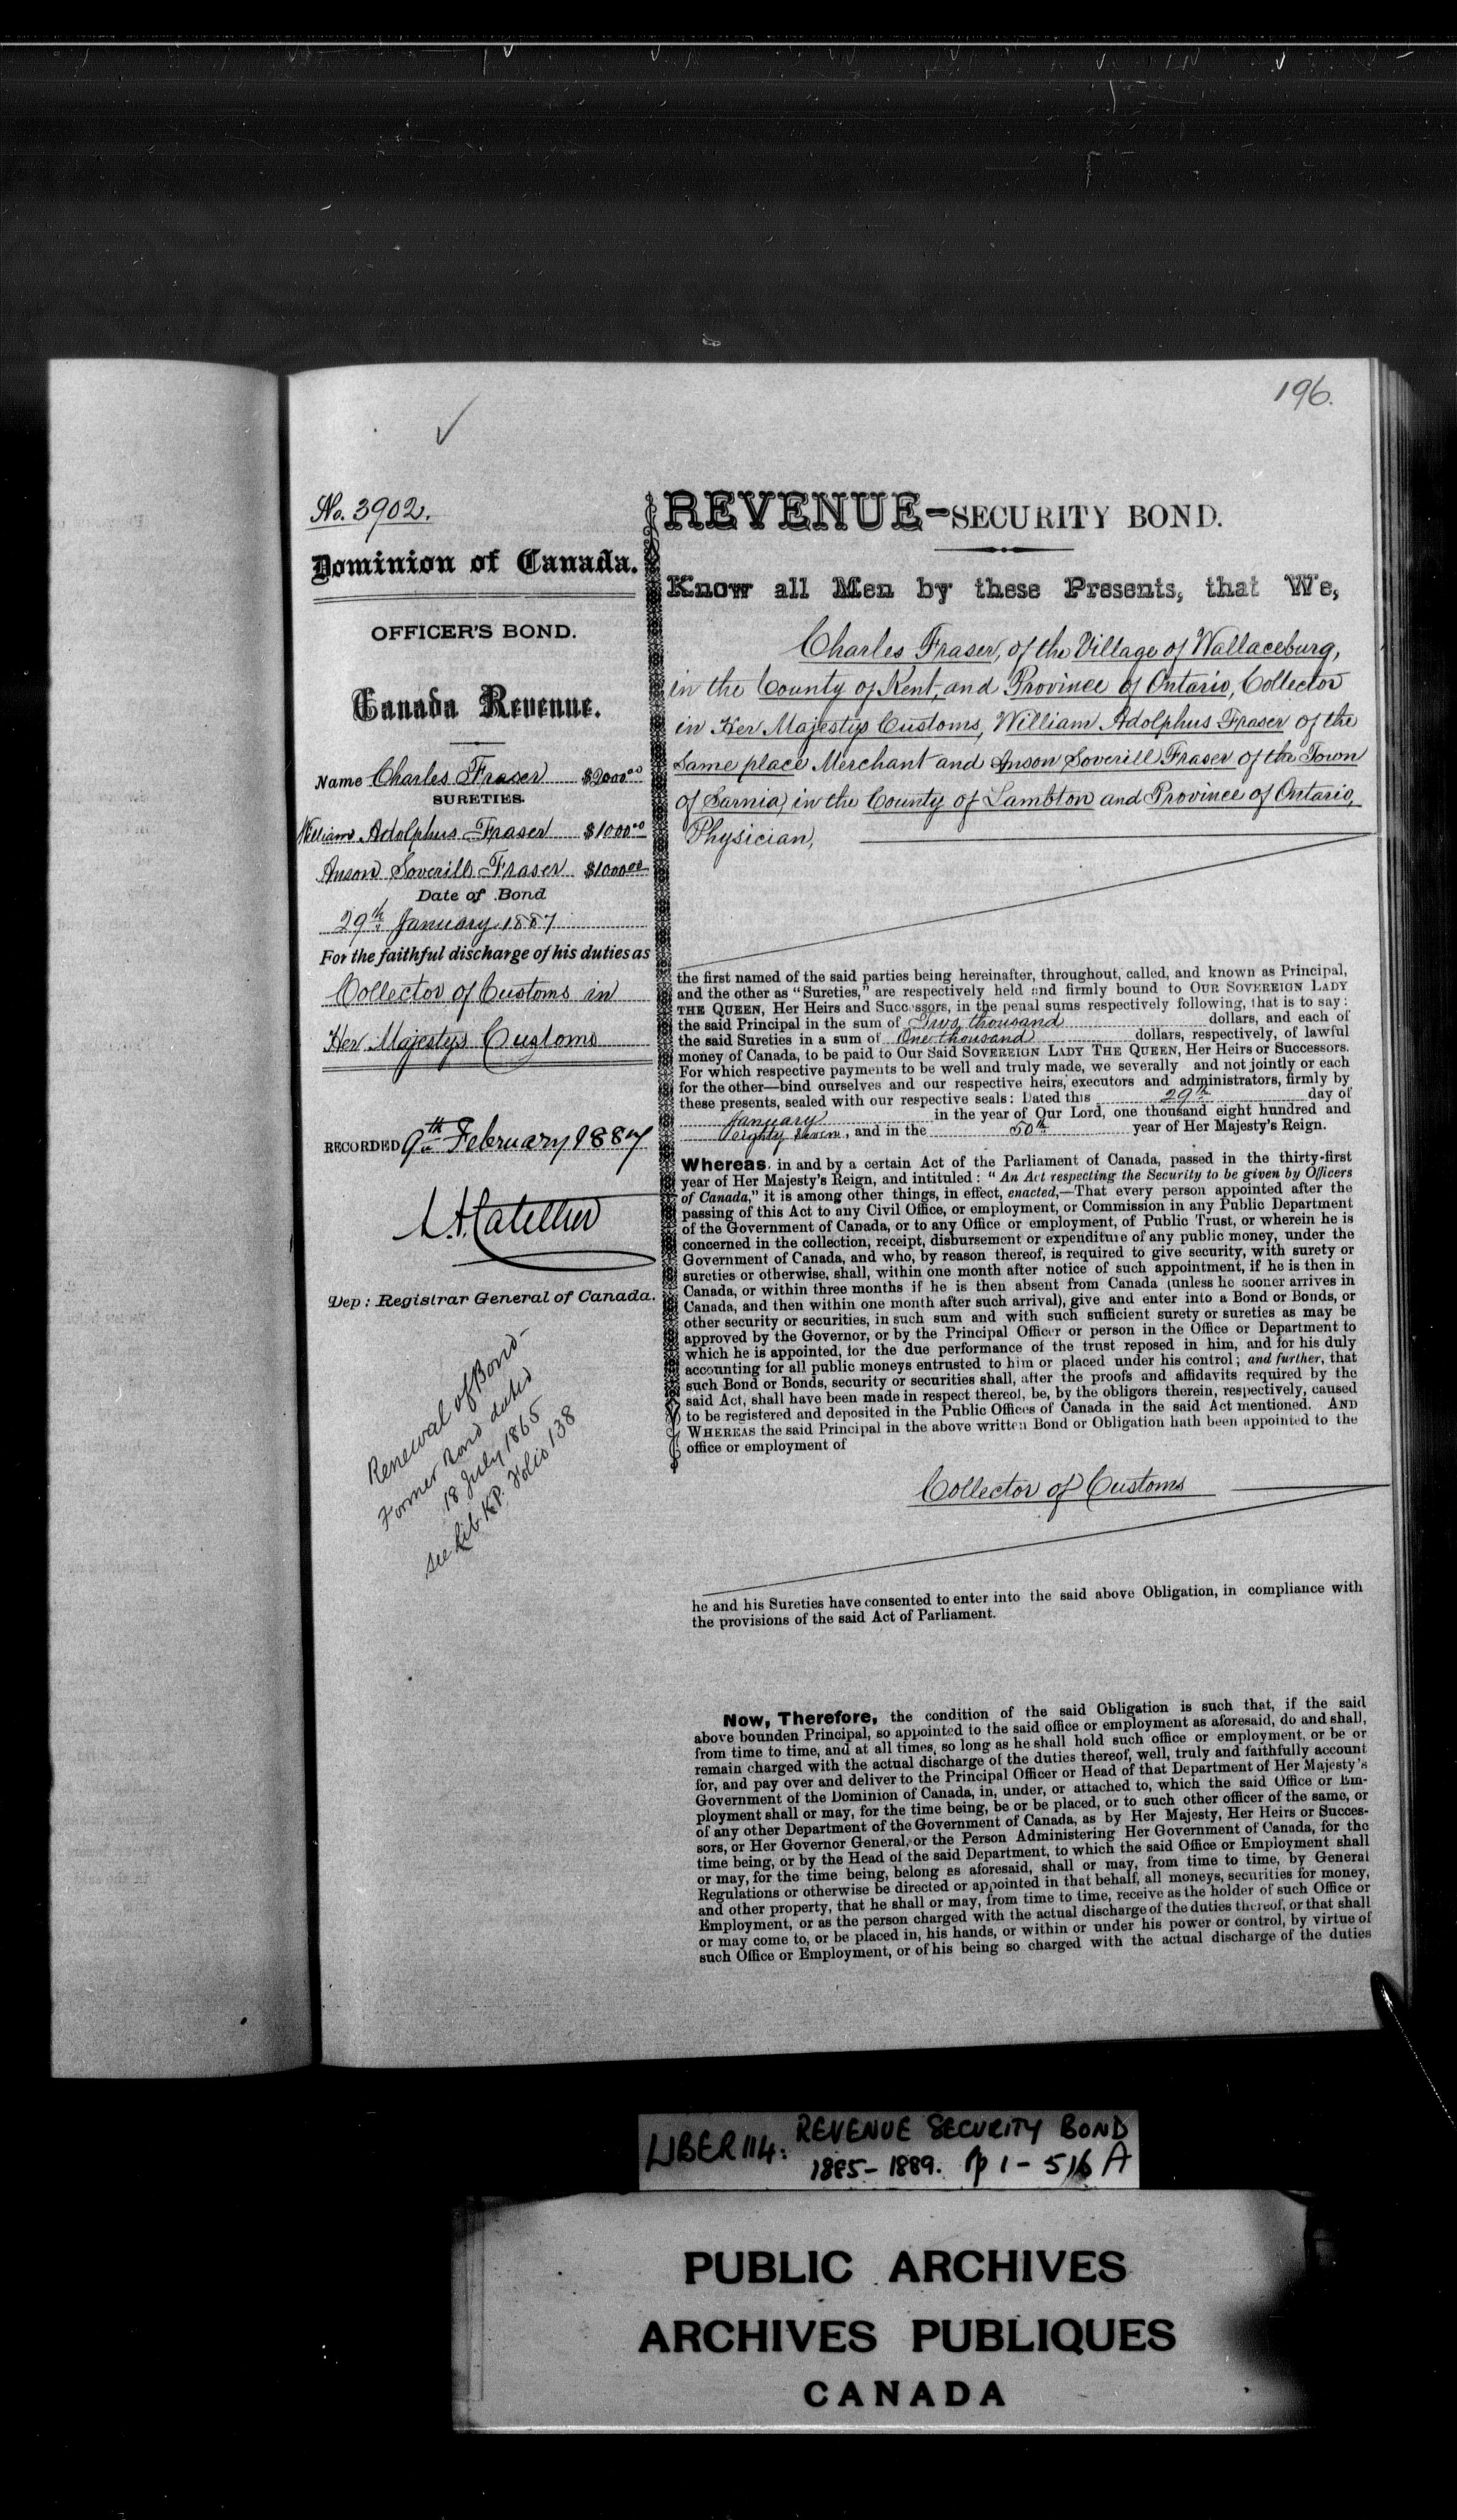 196.
No. 3902.
Dominion of Canada.
OFFICER'S BOND.
Canada Revenue.
Name Charles Fraser $2000.00
SURETIES.
William Adolphus Fraser $1000.00
Anson Soverill Fraser $1000.00
Date of Bond
29th January 1887
For the faithful discharge of his duties as
Collector of Customs in
Her Majestys Customs
RECORDED 9th February 1887
L. A. Catellier
Dep: Registrar General of Canada.
Renewal of Bond-
Former Bond dated
18 July 1865
see Lib. K.P. Folio 138
REVENUE-SECURITY BOND.
Know all Men by these Presents, that We,
Charles Fraser, of the Village of Wallaceburg,
in the County of Kent, and Province of Ontario, Collector
in Her Majestys Customs, William Adolphus Fraser of the
Same place Merchant and Anson Soverill Fraser of the Town
of Sarnia, in the County of Lambton and Province of Ontario,
Physician,
the first named of the said parties being hereinafter, throughout, called, and known as Principal,
and the other as "Sureties," are respectively held and firmly bound to OUR SOVEREIGN LADY
THE QUEEN, Her Heirs and Successors, in the penal sums respectively following, that is to say:
the said Principal in the sum of Two thousand dollars, and each of
the said Sureties in a sum of One thousand dollars, respectively, of lawful
money of Canada, to be paid to Our Said SOVEREIGN LADY THE QUEEN, Her Heirs or Successors.
For which respective payments to be well and truly made, we severally and not jointly or each
for the other—bind ourselves and our respective heirs, executors and administrators, firmly by
these presents, sealed with our respective seals: Dated this 29th day of
January in the year of Our Lord, one thousand eight hundred and
eighty seven, and in the 50th year of Her Majesty's Reign.
Whereas, in and by a certain Act of the Parliament of Canada, passed in the thirty-first
year of Her Majesty's Reign, and intituled: "An Act respecting the Security to be given by Officers
of Canada," it is among other things, in effect, enacted,—That every person appointed after the
passing of this Act to any Civil Office, or employment, or Commission in any Public Department
of the Government of Canada, or to any Office or employment, of Public Trust, or wherein he is
concerned in the collection, receipt, disbursement or expenditure of any public money, under the
Government of Canada, and who, by reason thereof, is required to give security, with surety or
sureties or otherwise, shall, within one month after notice of such appointment, if he is then in
Canada, or within three months if he is then absent from Canada (unless he sooner arrives in
Canada, and then within one month after such arrival), give and enter into a Bond or Bonds, or
other security or securities, in such sum and with such sufficient surety or sureties as may be
approved by the Governor, or by the Principal Officer or person in the Office or Department to
which he is appointed, for the due performance of the trust reposed in him, and for his duly
accounting for all public moneys entrusted to him or placed under his control; and further, that
such Bond or Bonds, security or securities shall, after the proofs and affidavits required by the
said Act, shall have been made in respect thereof, be, by the obligors therein, respectively, caused
to be registered and deposited in the Public Offices of Canada in the said Act mentioned. AND
WHEREAS the said Principal in the above written Bond or Obligation hath been appointed to the
office or employment of
Collector of Customs
he and his Sureties have consented to enter into the said above Obligation, in compliance with
the provisions of the said Act of Parliament.
Now, Therefore, the condition of the said Obligation is such that, if the said
above bounden Principal, so appointed to the said office or employment as aforesaid, do and shall,
from time to time, and at all times, so long as he shall hold such office or employment, or be or
remain charged with the actual discharge of the duties thereof, well, truly and faithfully account
for, and pay over and deliver to the Principal Officer or Head of that Department of Her Majesty's
Government of the Dominion of Canada, in, under, or attached to, which the said Office or Em-
ployment shall or may, for the time being, be or be placed, or to such other officer of the same, or
of any other Department of the Government of Canada, as by Her Majesty, Her Heirs or Succes-
sors, or Her Governor General, or the Person Administering Her Government of Canada, for the
time being, or by the Head of the said Department, to which the said Office or Employment shall
or may, for the time being, belong as aforesaid, shall or may, from time to time, by General
Regulations or otherwise be directed or appointed in that behalf, all moneys, securities for money,
and other property, that he shall or may, from time to time, receive as the holder of such Office or
Employment, or as the person charged with the actual discharge of the duties thereof, or that shall
or may come to, or be placed in, his hands, or within or under his power or control, by virtue of
such Office or Employment, or of his being so charged with the actual discharge of the duties
LIBER 114: REVENUE SECURITY BOND
1885-1889. pp 1-516 A
PUBLIC ARCHIVES
ARCHIVES PUBLIQUES
CANADA